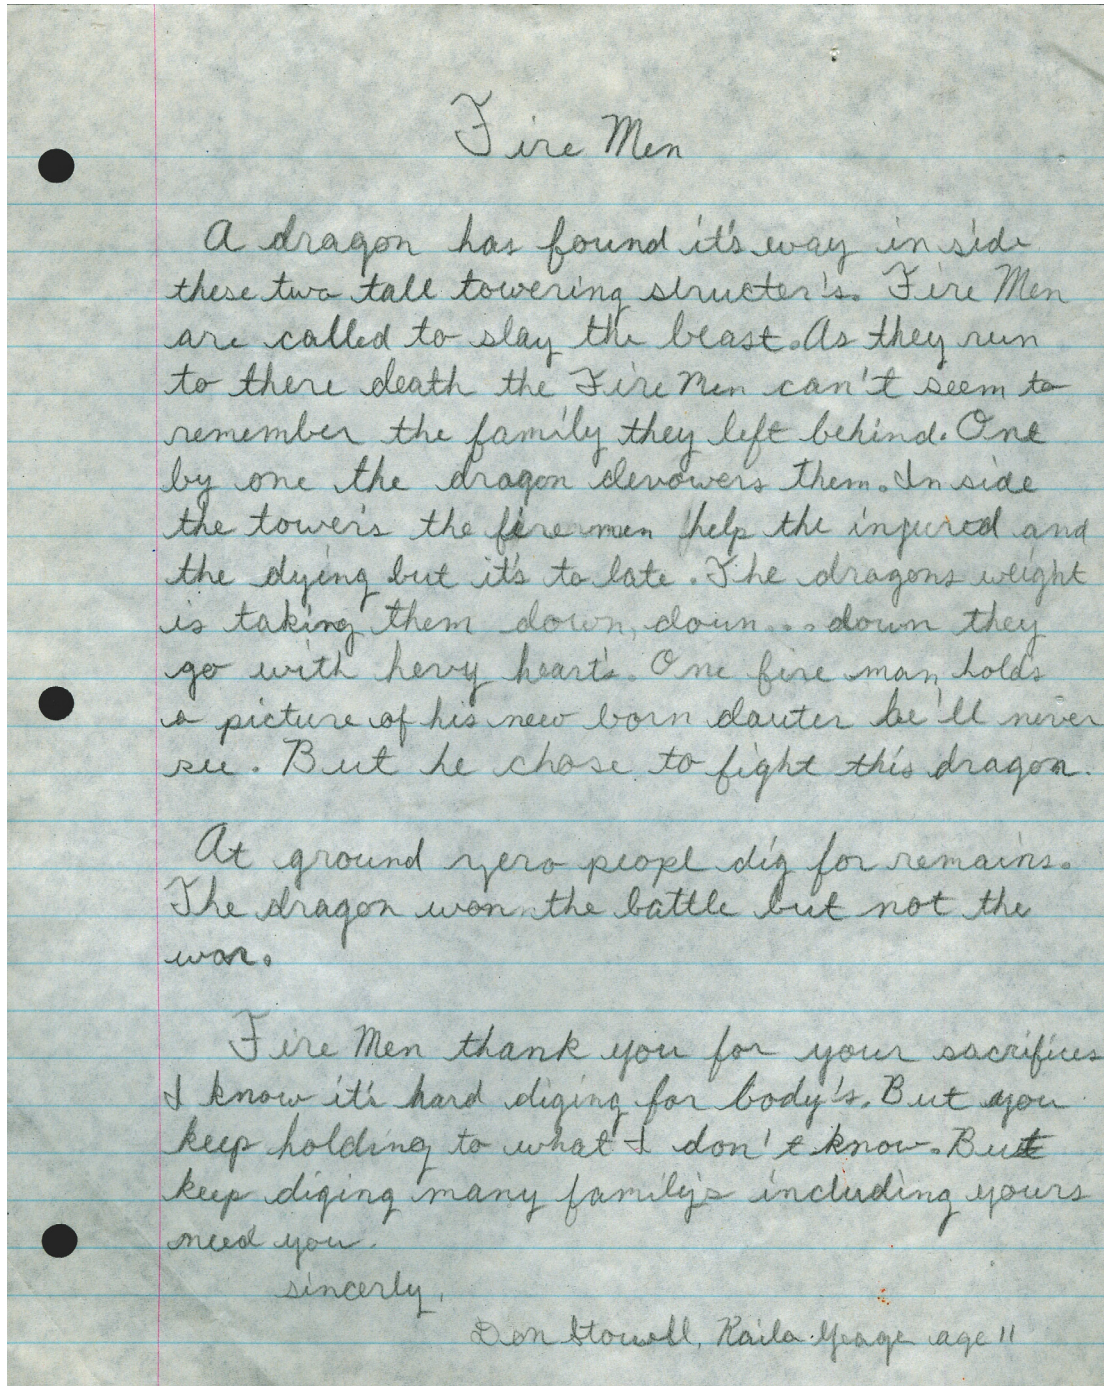 Fire Men
A dragon has found it's way in side
these two tall towering structer's. Fire Men
are called to slay the beast. As they run
to there death the Fire Men can't seem to
remember the family they left behind. One
by one the dragon devowers them. In side
the tower's the firemen help the injured and
the dying but it's to late. The dragons weight
is taking them down, down... down they
go with hevy heart's. One fire man holds
a picture of his new born dauter he'll never
see. But he chose to fight this dragon.
At ground zero peopl dig for remains.
The dragon won the battle but not the
war.
Fire Men thank you for your sacrifices
I know it's hard diging for body's. But you
keep holding to what I don't know. But
keep diging many family's including yours
need you.
sincerly,
Stowell, Kaila age 11